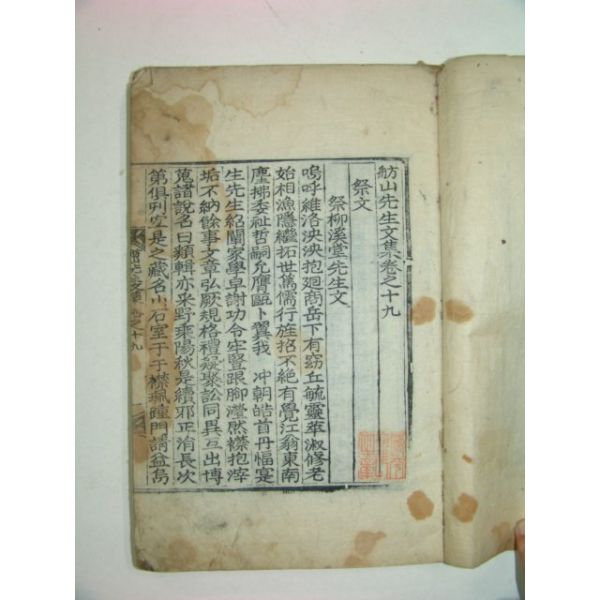 舫山先生文集卷之十九
祭文
祭柳溪堂先生文
嗚呼維洛泱泱抱廻商岳下有窈丘毓靈萃淑修老
始相漁隱繼拓世篤儒行旌招不絕有覺江翁東南
塵拂委祉哲嗣允膺甌卜翼我 冲朝皓首丹愊寔
生先生紹聞家學卓謝功令牢豎跟腳瀅然襟抱滓
垢不納餘事文章弘厥規格禮疑聚訟同異互出博
蒐諸說名曰類輯亦采野乘陽秋是續邪正消長次
第俱列空是之藏名小石室于于襟珮踵門請益烏